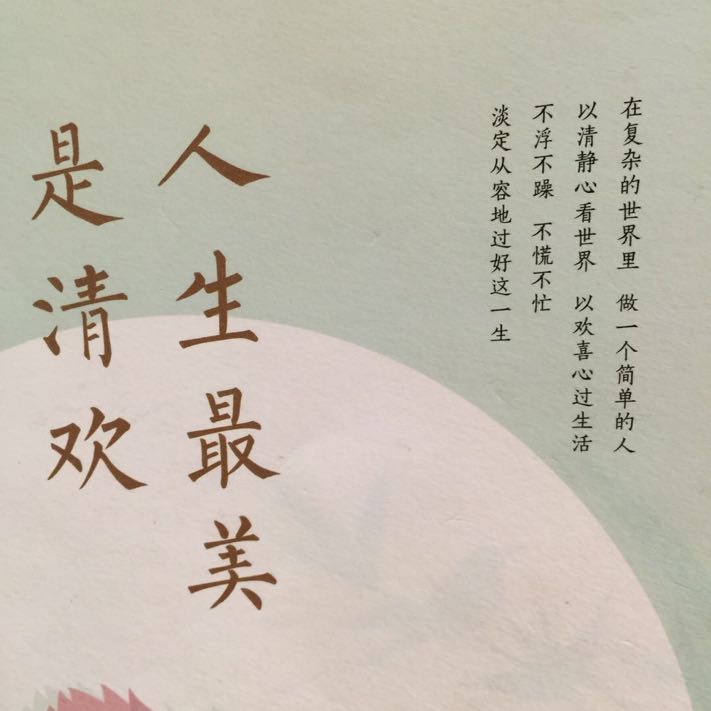 人生最美
是清欢
在复杂的世界里 做一个简单的人
以清静心看世界 以欢喜心过生活
不浮不躁 不慌不忙
淡定从容地过好这一生